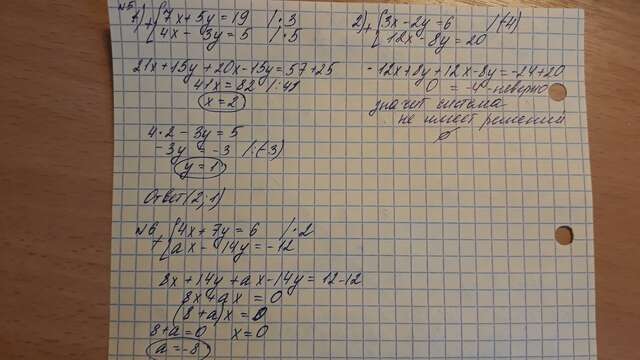 №5
1) + { 7x + 5y = 19 /·3
4x - 3y = 5 /·5
21x + 15y + 20x - 15y = 57 + 25
41x = 82 /:41
x = 2
4·2 - 3y = 5
-3y = -3 /:(-3)
y = 1
Ответ (2; 1)
2) + { 3x - 2y = 6 /·(-4)
12x - 8y = 20
-12x + 8y + 12x - 8y = -24 + 20
0 = -4 - неверно
значит система
не имеет решений
∅
№6
+ { 4x + 7y = 6 /·2
ax - 14y = -12
8x + 14y + ax - 14y = 12 - 12
8x + ax = 0
(8 + a)x = 0
8 + a = 0 x = 0
a = -8